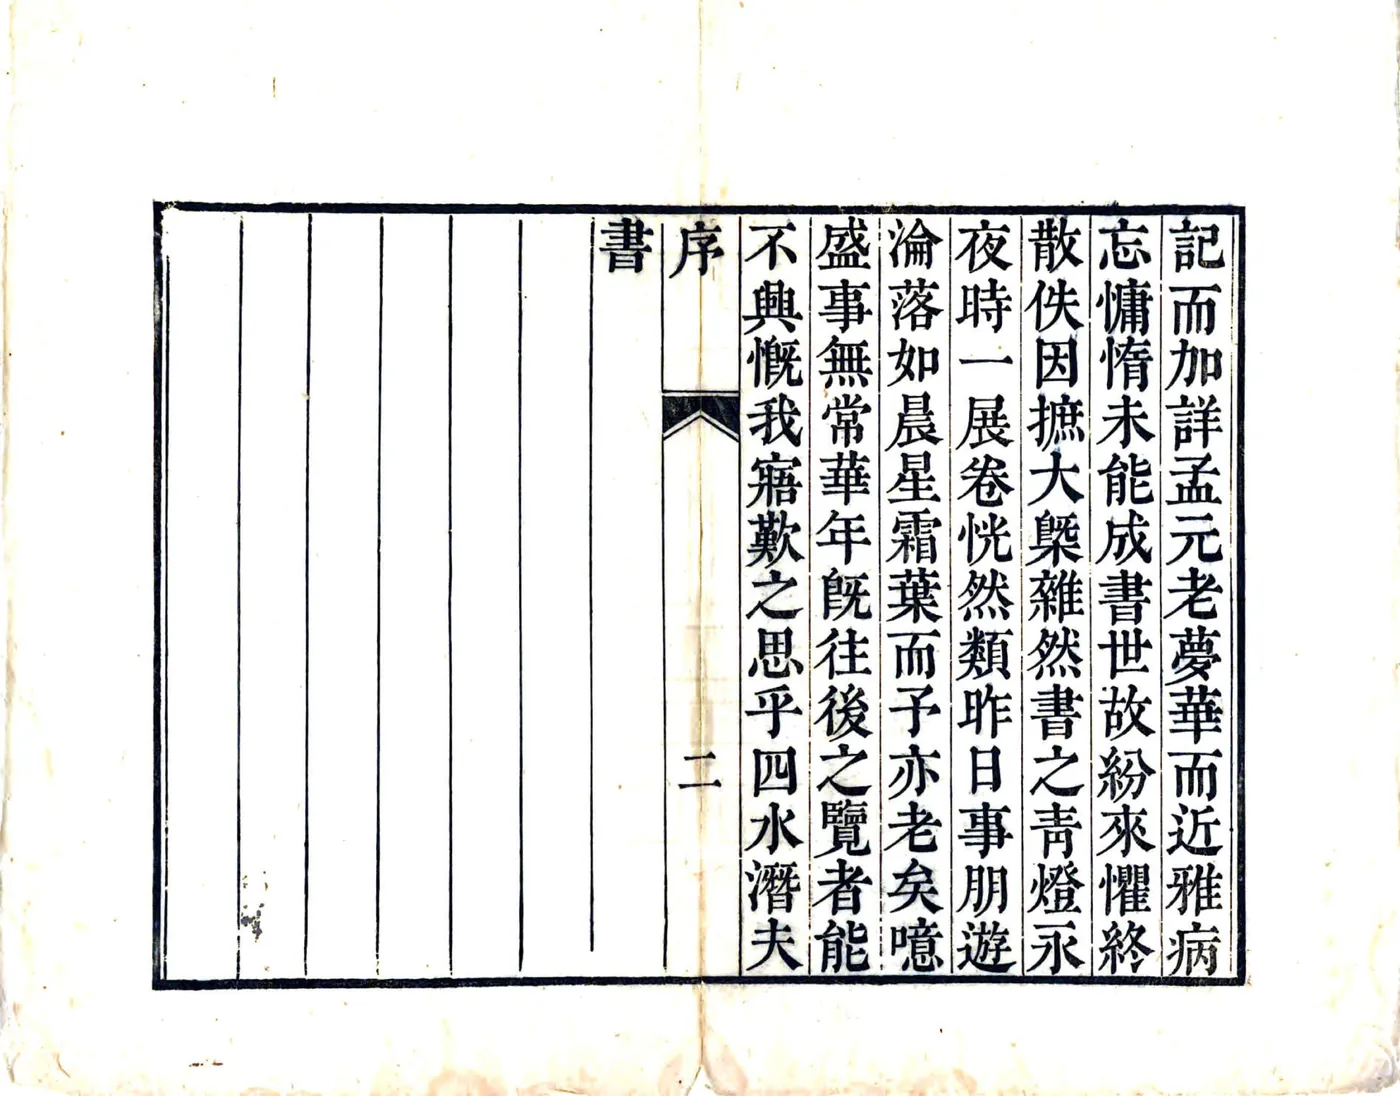 記而加詳孟元老夢華而近雅病
忘慵惰未能成書世故紛來懼終
散佚因摭大槩雜然書之靑燈永
夜時一展卷恍然類昨日事朋遊
淪落如晨星霜葉而予亦老矣噫
盛事無常華年旣往後之覽者能
不興慨我寤歎之思乎四水潛夫
序
二
書